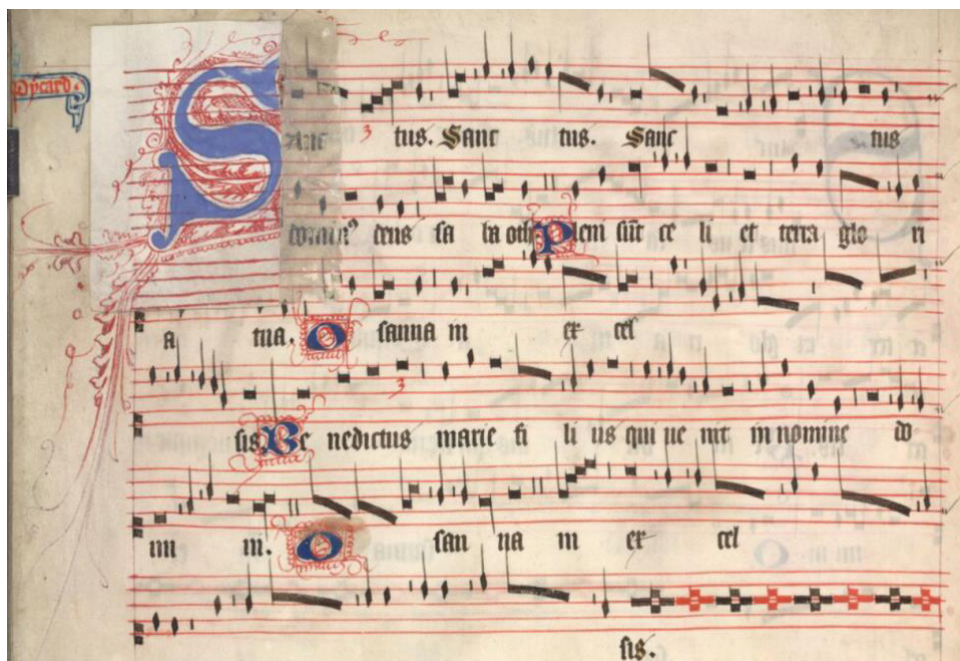 Pycard.
Sanc tus. Sanc tus. Sanc tus
domin⁹ deus sa ba oth Pleni sūt ce li et terra glo ri
a tua. O sanna in ex cel
sis Be nedictus marie fi li us qui ue nit in nomine do
mi ni. O san na in ex cel
sis.